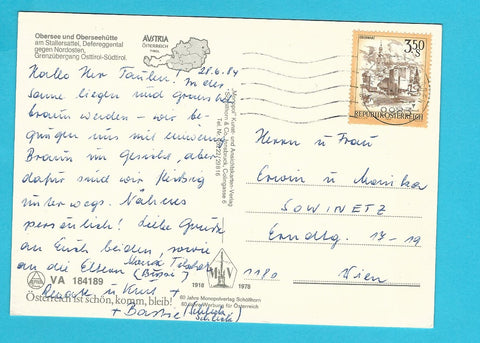 Obersee und Oberseehütte
am Stallersattel, Defereggental
gegen Nordosten,
Grenzübergang Osttirol-Südtirol.
AUSTRIA
ÖSTERREICH
TIROL
28.6.84
Hallo Ihr Tauben! In der
Sonne liegen und
braun werden - wir be-
gnügen uns mit
Braun im Gesicht, aber
dafür sind wir fleißig
unterwegs. Näheres
persönlich! Liebe Grüße
an Euch beiden sowie
an die Eltern
(Bussi)
Renate u Kurt +
+
VA 184189
Österreich ist schön, komm, bleib!
"Monopol" Kunst- und Ansichtskarten-Verlag
Schöllhorn & Co., Innsbruck, Colingasse 6
1918 1978
60 Jahre Monopolverlag Schöllhorn
60 Jahre Werbung für Österreich
3,50
S
REPUBLIK ÖSTERREICH
Herrn u Frau
Erwin u Monika
SOWINETZ
17-19
1190 Wien